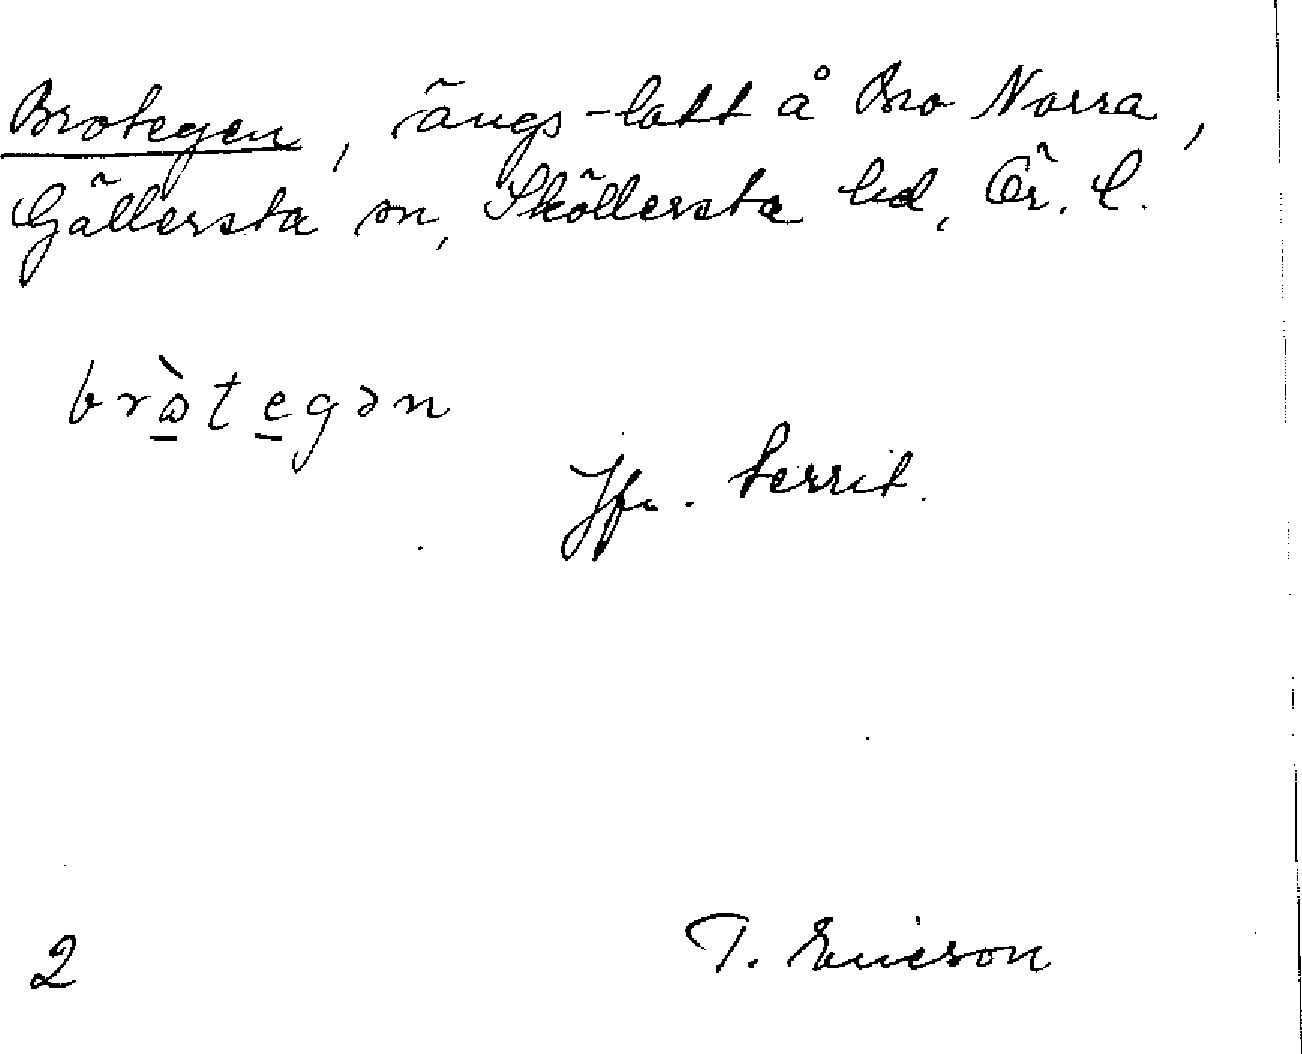 Brotegen, ängs-lott å Bro Norra,
Gällersta sn, Sköllersta hd, Ör. l.
bròtegən
Jfr. territ.
2
T. Ericson